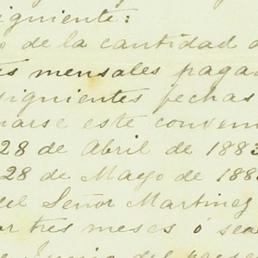 siguiente:
de la cantidad d
mensales paga
siguientes fechas
marse este conven
28 de Abril de 1883
28 de Mayo de 188
del Señor Martinez
or tres meses ó sea